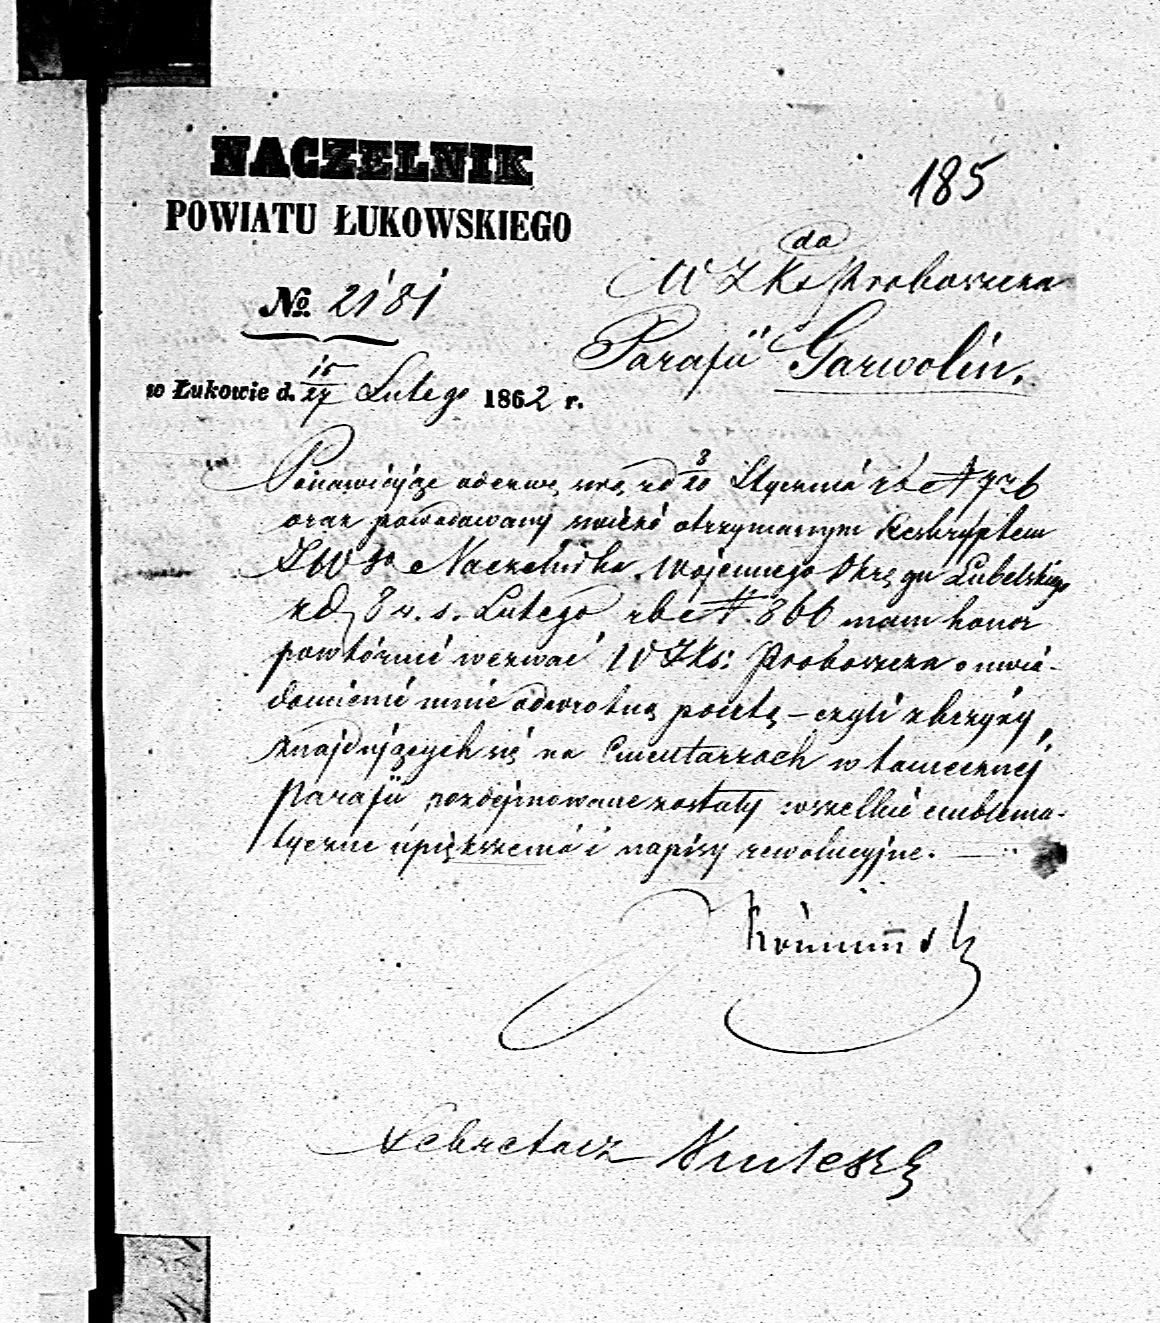 NACZELNIK
POWIATU ŁUKOWSKIEGO
185
do
W JKs Proboszcza
№ 2181
Parafii Garwolin.
w Łukowie d. 15/27 Lutego 1862 r.
Ponawiając odezwę swą z d 8/20 Stycznia rb № 726
oraz powodowany świeżo otrzymanym Reskryptem
JW Naczelnika Wojennego Okręgu Lubelskiego
z d 8 n. s. Lutego rb № 866 mam honor
powtórnie wezwać W JKs: Proboszcza o uwia-
domienie mnie odwrotną pocztą – czyli z krzyży,
znajdujących się na Cmentarzach w tamecznej
Parafii pozdejmowane zostały wszelkie emblema-
tyczne upiększenia i napisy rewolucyjne.
Sekretarz